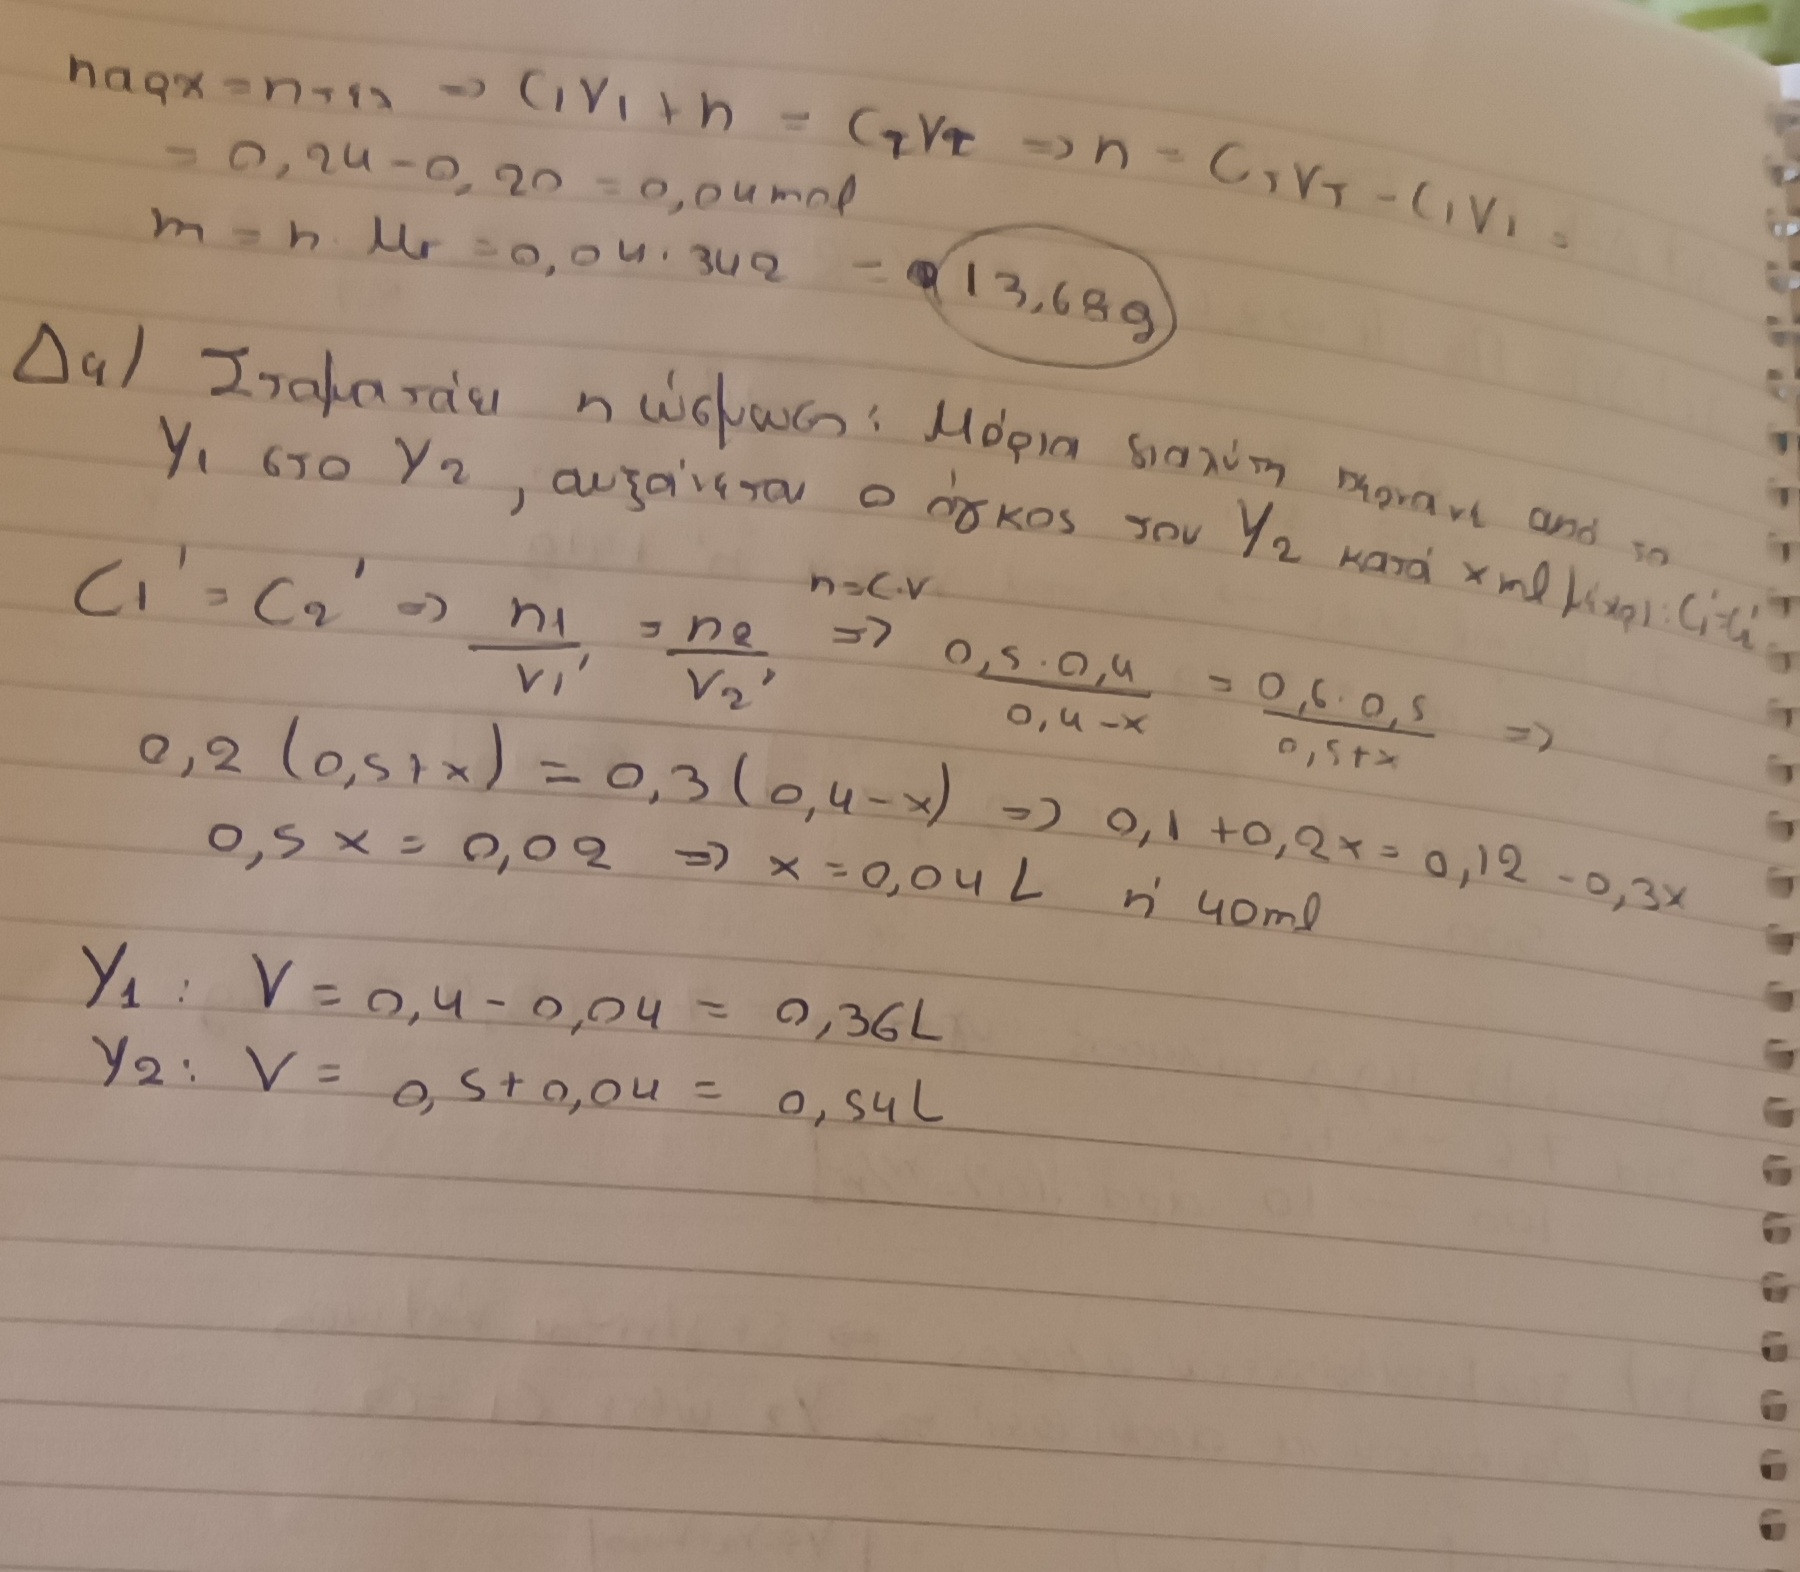 nαρχ = nτελ => C₁V₁ + n = CτVτ => n = CτVτ - C₁V₁ =
= 0,24 - 0,20 = 0,04 mol
m = n · Mr = 0,04 · 342 = 13,68g
Δ4) Σταματάει η ώσμωση: Μόρια διαλύτη περνάνε από το
Υ₁ στο Υ₂, αυξάνεται ο όγκος του Υ₂ κατά x ml μέχρι: C₁'=C₂'
n=C.V
C₁' = C₂' => n₁/V₁' = n₂/V₂' => 0,5·0,4/0,4-x = 0,6·0,5/0,5+x =>
0,2 (0,5+x) = 0,3 (0,4-x) => 0,1 +0,2x = 0,12 -0,3x
0,5x = 0,02 => x = 0,04 L ή 40ml
Υ1: V = 0,4 - 0,04 = 0,36L
Υ2: V = 0,5+0,04 = 0,54L